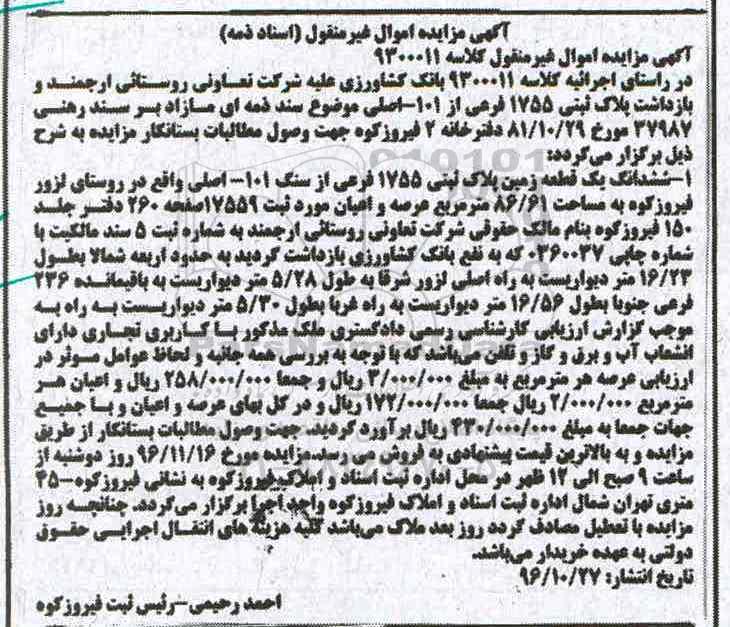 آگهی مزایده اموال غیرمنقول (اسناد ذمه)
آگهی مزایده اموال غیرمنقول کلاسه ۹۳۰۰۰۱۱
در راستای اجرائیه کلاسه ۹۳۰۰۰۱۱ بانک کشاورزی علیه شرکت تعاونی روستائی ارجمند و
بازداشت پلاک ثبتی ۱۷۵۵ فرعی از ۱۰۱-اصلی موضوع سند ذمه ای مازاد بر سند رهنی
۳۷۹۸۷ مورخ ۸۱/۱۰/۲۹ دفترخانه ۲ فیروزکوه جهت وصول مطالبات بستانکار مزایده به شرح
ذیل برگزار می‌گردد:
۱-ششدانگ یک قطعه زمین پلاک ثبتی ۱۷۵۵ فرعی از سنگ ۱۰۱- اصلی واقع در روستای لزور
فیروزکوه به مساحت ۸۶/۶۱ مترمربع عرصه و اعیان مورد ثبت ۱۷۵۵۹صفحه ۲۶۰ دفتر جلد
۱۵۰ فیروزکوه بنام مالک حقوقی شرکت تعاونی روستائی ارجمند به شماره ثبت ۵ سند مالکیت با
شماره چاپی ۰۳۶۰۰۳۷ که به نفع بانک کشاورزی بازداشت گردید به حدود اربعه شمالا بطول
۱۶/۲۳ متر دیواریست به راه اصلی لزور شرقا به طول ۵/۲۸ متر دیواریست به باقیمانده ۲۳۶
فرعی جنوبا بطول ۱۶/۵۶ متر دیواریست به راه غربا بطول ۵/۳۰ متر دیواریست به راه به
موجب گزارش ارزیابی کارشناسی رسمی دادگستری ملک مذکور با کاربری تجاری دارای
انشعاب آب و برق و گاز و تلفن می‌باشد که با توجه به بررسی همه جانبه و لحاظ عوامل موثر در
ارزیابی عرصه هر مترمربع به مبلغ ۳/۰۰۰/۰۰۰ ریال و جمعا ۲۵۸/۰۰۰/۰۰۰ ریال و اعیان هر
مترمربع ۲/۰۰۰/۰۰۰ ریال جمعا ۱۷۲/۰۰۰/۰۰۰ ریال و در کل بهای عرصه و اعیان و با جمیع
جهات جمعا به مبلغ ۴۳۰/۰۰۰/۰۰۰ ریال برآورد گردید. جهت وصول مطالبات بستانکار از طریق
مزایده و به بالاترین قیمت پیشنهادی به فروش می رسد.مزایده مورخ ۹۶/۱۱/۱۶ روز دوشنبه از
ساعت ۹ صبح الی ۱۲ ظهر در محل اداره ثبت اسناد و املاک فیروزکوه به نشانی فیروزکوه-۳۵
متری تهران شمال اداره ثبت اسناد و املاک فیروزکوه واحد اجرا برگزار می‌گردد. چنانچه روز
مزایده با تعطیل مصادف گردد روز بعد ملاک می‌باشد کلیه هزینه های انتقال اجرایی حقوق
دولتی به عهده خریدار می‌باشد.
تاریخ انتشار: ۹۶/۱۰/۲۷
احمد رحیمی-رئیس ثبت فیروزکوه